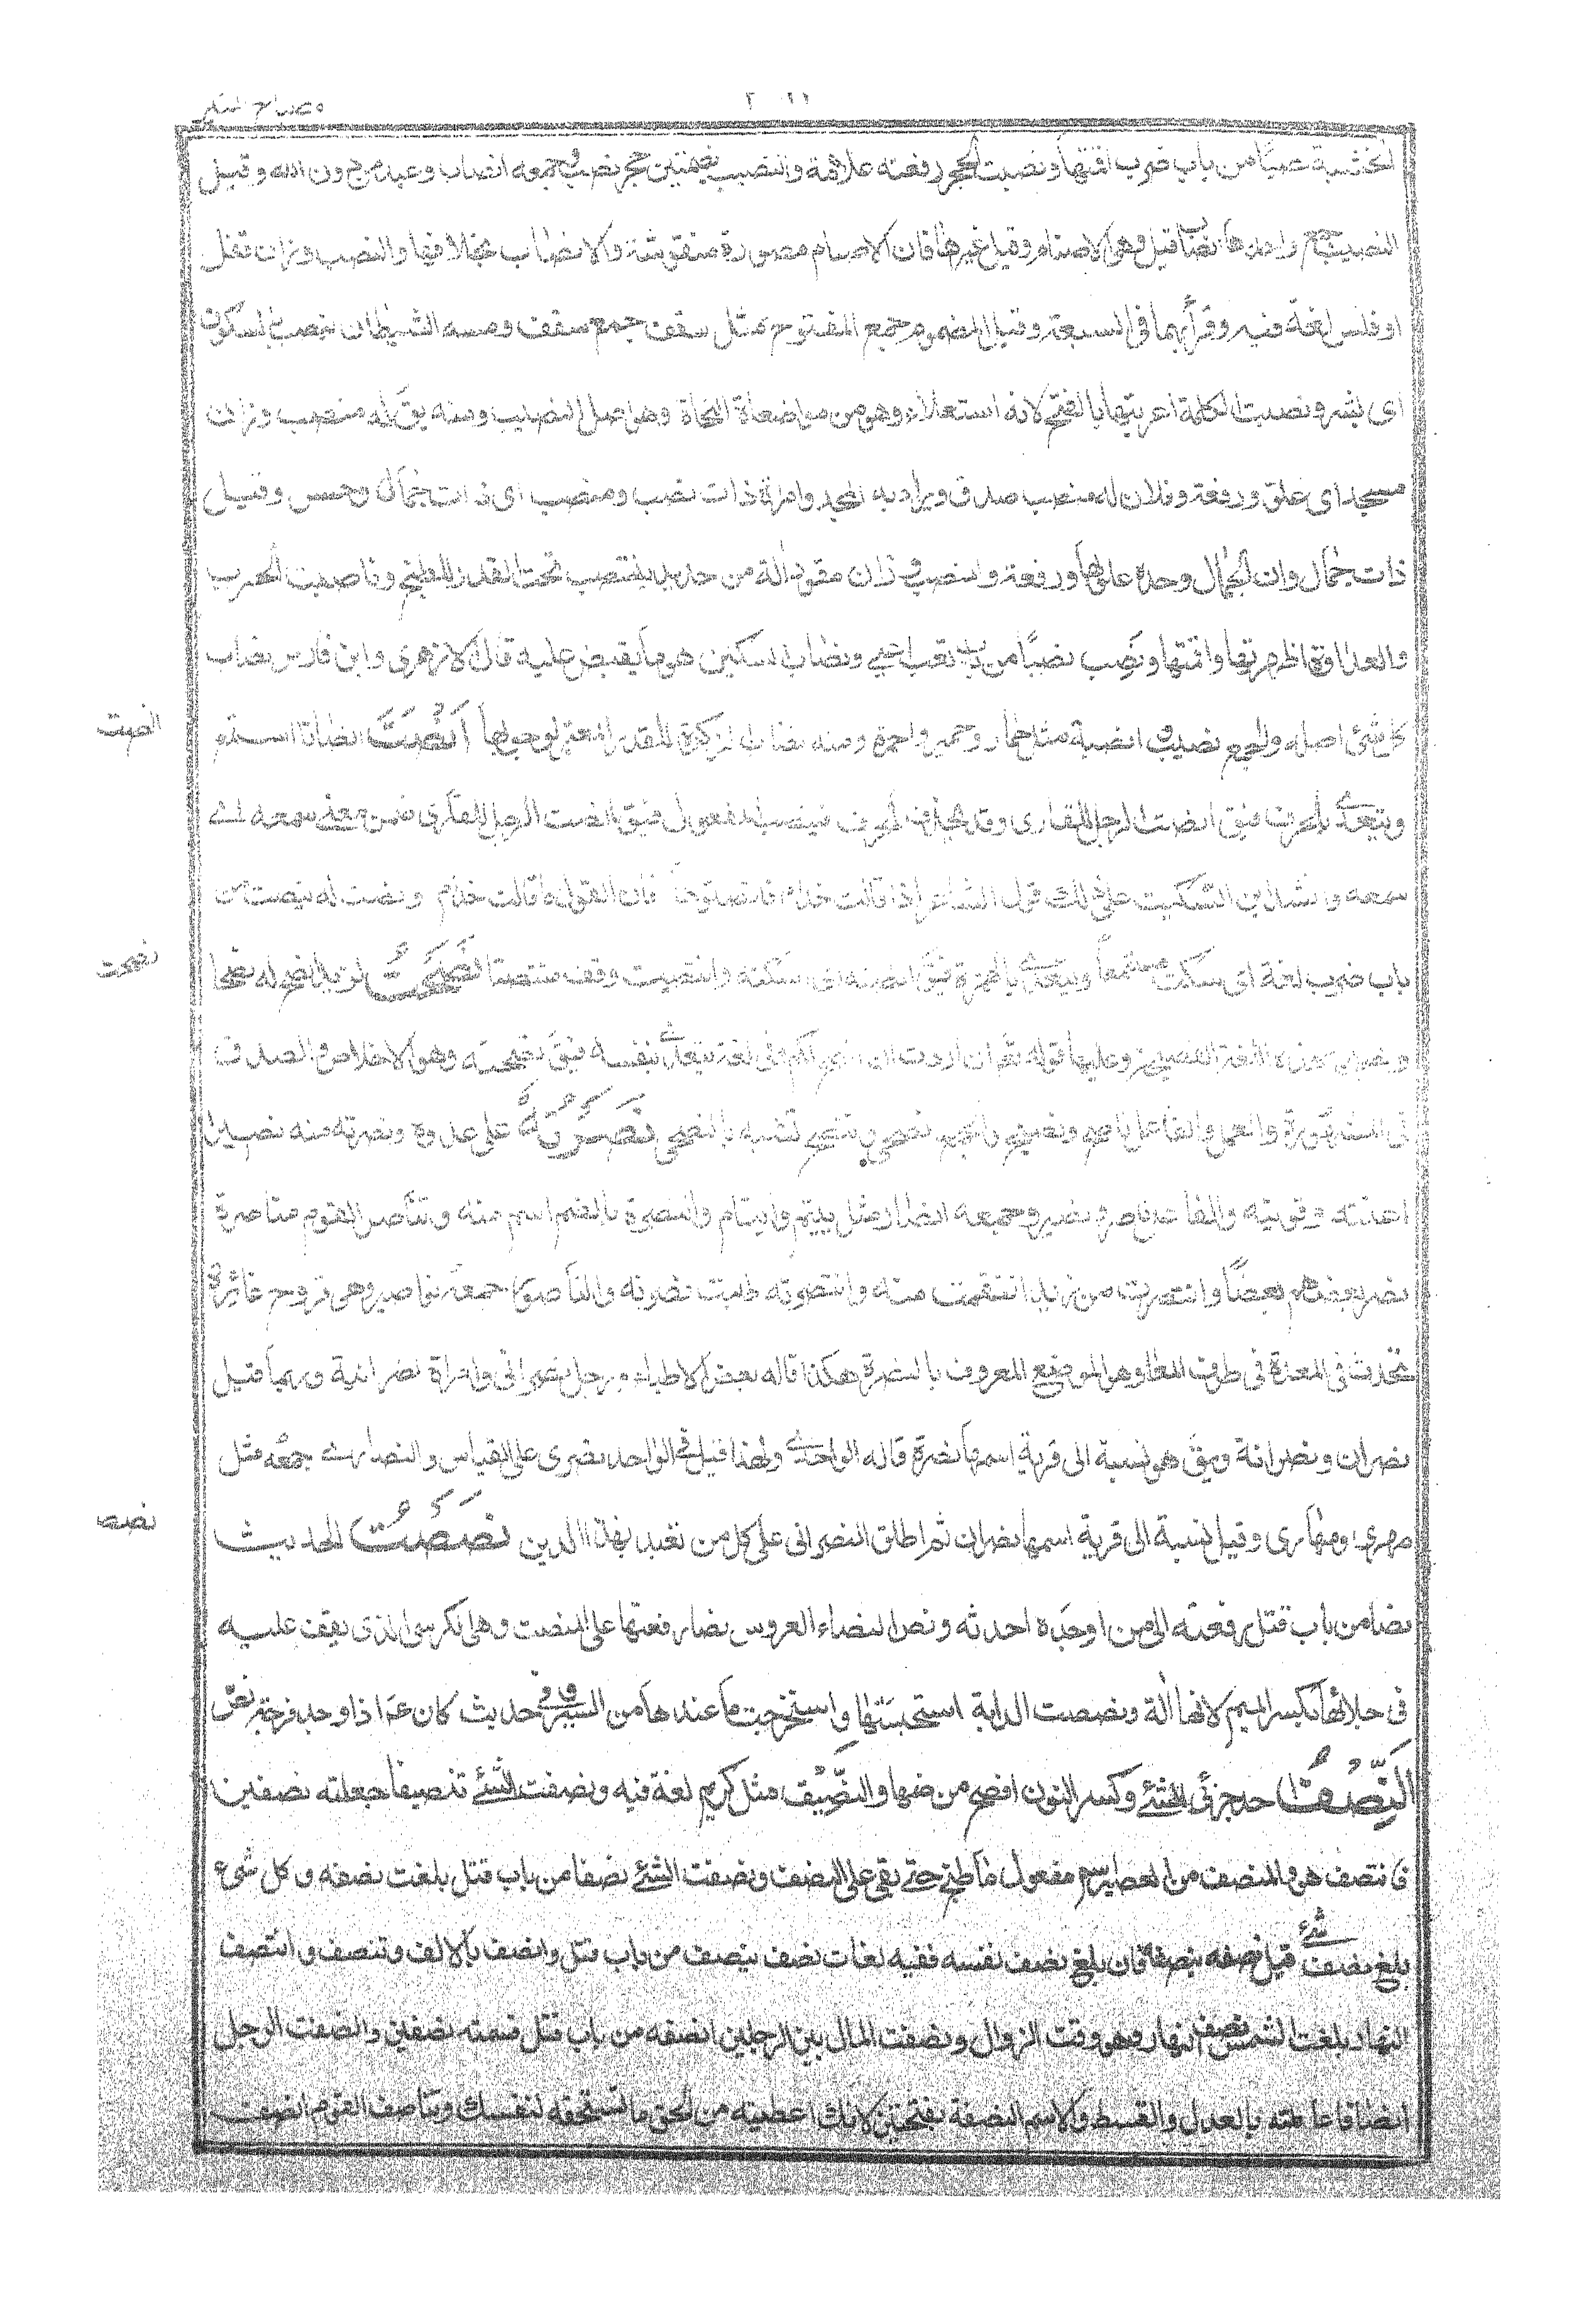 مصباح المنير
الخشبة نصبا من باب ضرب اقمتها ونصبت الحجر رفعته علامة والنصب بضمتين حجر نصب وجمعه انصاب وعبد من دون الله وقيل
النصب جمع واحدها نصاب قيل وهي الاصنام وقيل غيرها فان الاصنام مصورة منقوشة والانصاب بخلافها والنصب وزان قفل
او فلس لغة فيه وقرأ بهما في السبعة وقيل المضموم جمع المفتوح مثل سقف جمع سقف ومسه الشيطان بنصب بسكون
اى بشر ونصبت الكلمة اعربتها بالفتح لانه استعلاء وهو من مواضعاة النحاة وهو اصل النصب ومنه يق له منصب وزان
مسجد اى علق ورفعة وفلان له منصب صدق ويراد به المحتد وامراة ذات نصب ومنصب اى ذات جمال وحسن وقيل
ذات جمال وان الجمال وحده علو لها ورفعة والمنصب وزان مقود الة من حديد ينتصب تحت القدر للطبخ وناصبت الحرب
والعداوة اظهرتها واقمتها ونصب نصبًا من باب تعب اعيى ونصاب السكين هو ما يقبض عليه قال الازهرى وابن فارس نصاب
كل شئ اصله والجمع نصب وانصبة مثل حمار وحمر واحمرة ومنه نصاب الزكوة للقدر المعتبر لوجوبها اَنْصَتَ انصاتا استمع
الصت
ويتعدى بالحرف فيق انصت الرجل للقارى وقد يحذف الحرف فينصب المفعول فيق انصت الرجل القارى ضمن معنى سمعه
سمعه وانشد ابن السكيت على ذلك قول الشاعر اذا قالت خذام فانصتوها فان القول ما قالت خذام ونصت له ينصت من
باب ضرب لغة اى سكت مستمعاً ويتعدى بالهمزة فيق انصته اى اسكته وانتصت وقف منتصتا نَصَحْتُ لزيد انصح له نصحا
نصحت
ونصيحة هذه اللغة الفصيحة وعليها قوله تع ان اردت ان انصح لكم وفى لغة يتعدى بنفسه فيق نصحته وهو الاخلاص والصدق
فى المشورة والعمل والفاعل ناصح ونصيح والجمع نصحى وتنصح تشبه بالنصحى نَصَرْتُهُ على عدوه ونصرته منه نصرا
اعنته وقويته والفاعل ناصر ونصير وجمعه انصار مثل يتيم وايتام والنصرة بالضم اسم منه وتناصر القوم مناصرة
نصر بعضهم بعضًا وانتصرت من زيد انتقمت منه وانتصرته طلبت نصرته والناصور جمعه نواصير وهى قروح غائرة
تحدث فى المعدة فى طرف المعا وهو الموضع المعروف بالسرة هكذا قاله بعض الاطباء ورجل نصرانى وامراة نصرانية وربما قيل
نصران ونصرانة ويق هو نسبة الى قرية اسمها نصرة قاله الواحدى ولهذا قيل فى الواحد نصرى على القياس والنصارى جمعه مثل
مهرى ومهارى وقيل نسبة الى قرية اسمها نصران ثم اطلق النصرانى على كل من تعبد بهذا الدين نَصَصْتُ الحديث
نصص
نصا من باب قتل رفعته الى من احدثه ونص النساء العروس نصا رفعتها على المنصت وهى الكرسى الذى تقف عليه
فى جلائها بكسر الميم لانها الة ونصصت الدابة استحثثتها واستخرجت ما عندها من السير وفى حديث كان ع اذا وجد فرجة نص
اَلنِّصْفُ احد جزئى الشئ وكسر النون افصح من ضمها والنصيف مثل كريم لغة فيه ونصفت الشئ تنصيفا جعلته نصفين
فانتصف هو والمنصف من العصير اسم مفعول ما طبخ حتى بقى على النصف ونصفت الشئ نصفا من باب قتل بلغت نصفه وكل شىء
بلغ نصف شئ قيل نصفه ينصفه فان بلغ نصف نفسه ففيه لغات نصف ينصف من باب قتل وانصف بالالف وتنصف وانتصف
النهار بلغت الشمس نصف النهار وهو وقت الزوال ونصفت المال بين الرجلين انصفه من باب قتل قسمته نصفين وانصفت الرجل
انصافا عاملته بالعدل والقسط والاسم النصفة بفتحتين لانك اعطيته من الحق ما تستحقه لنفسك وتناصف القوم انصف